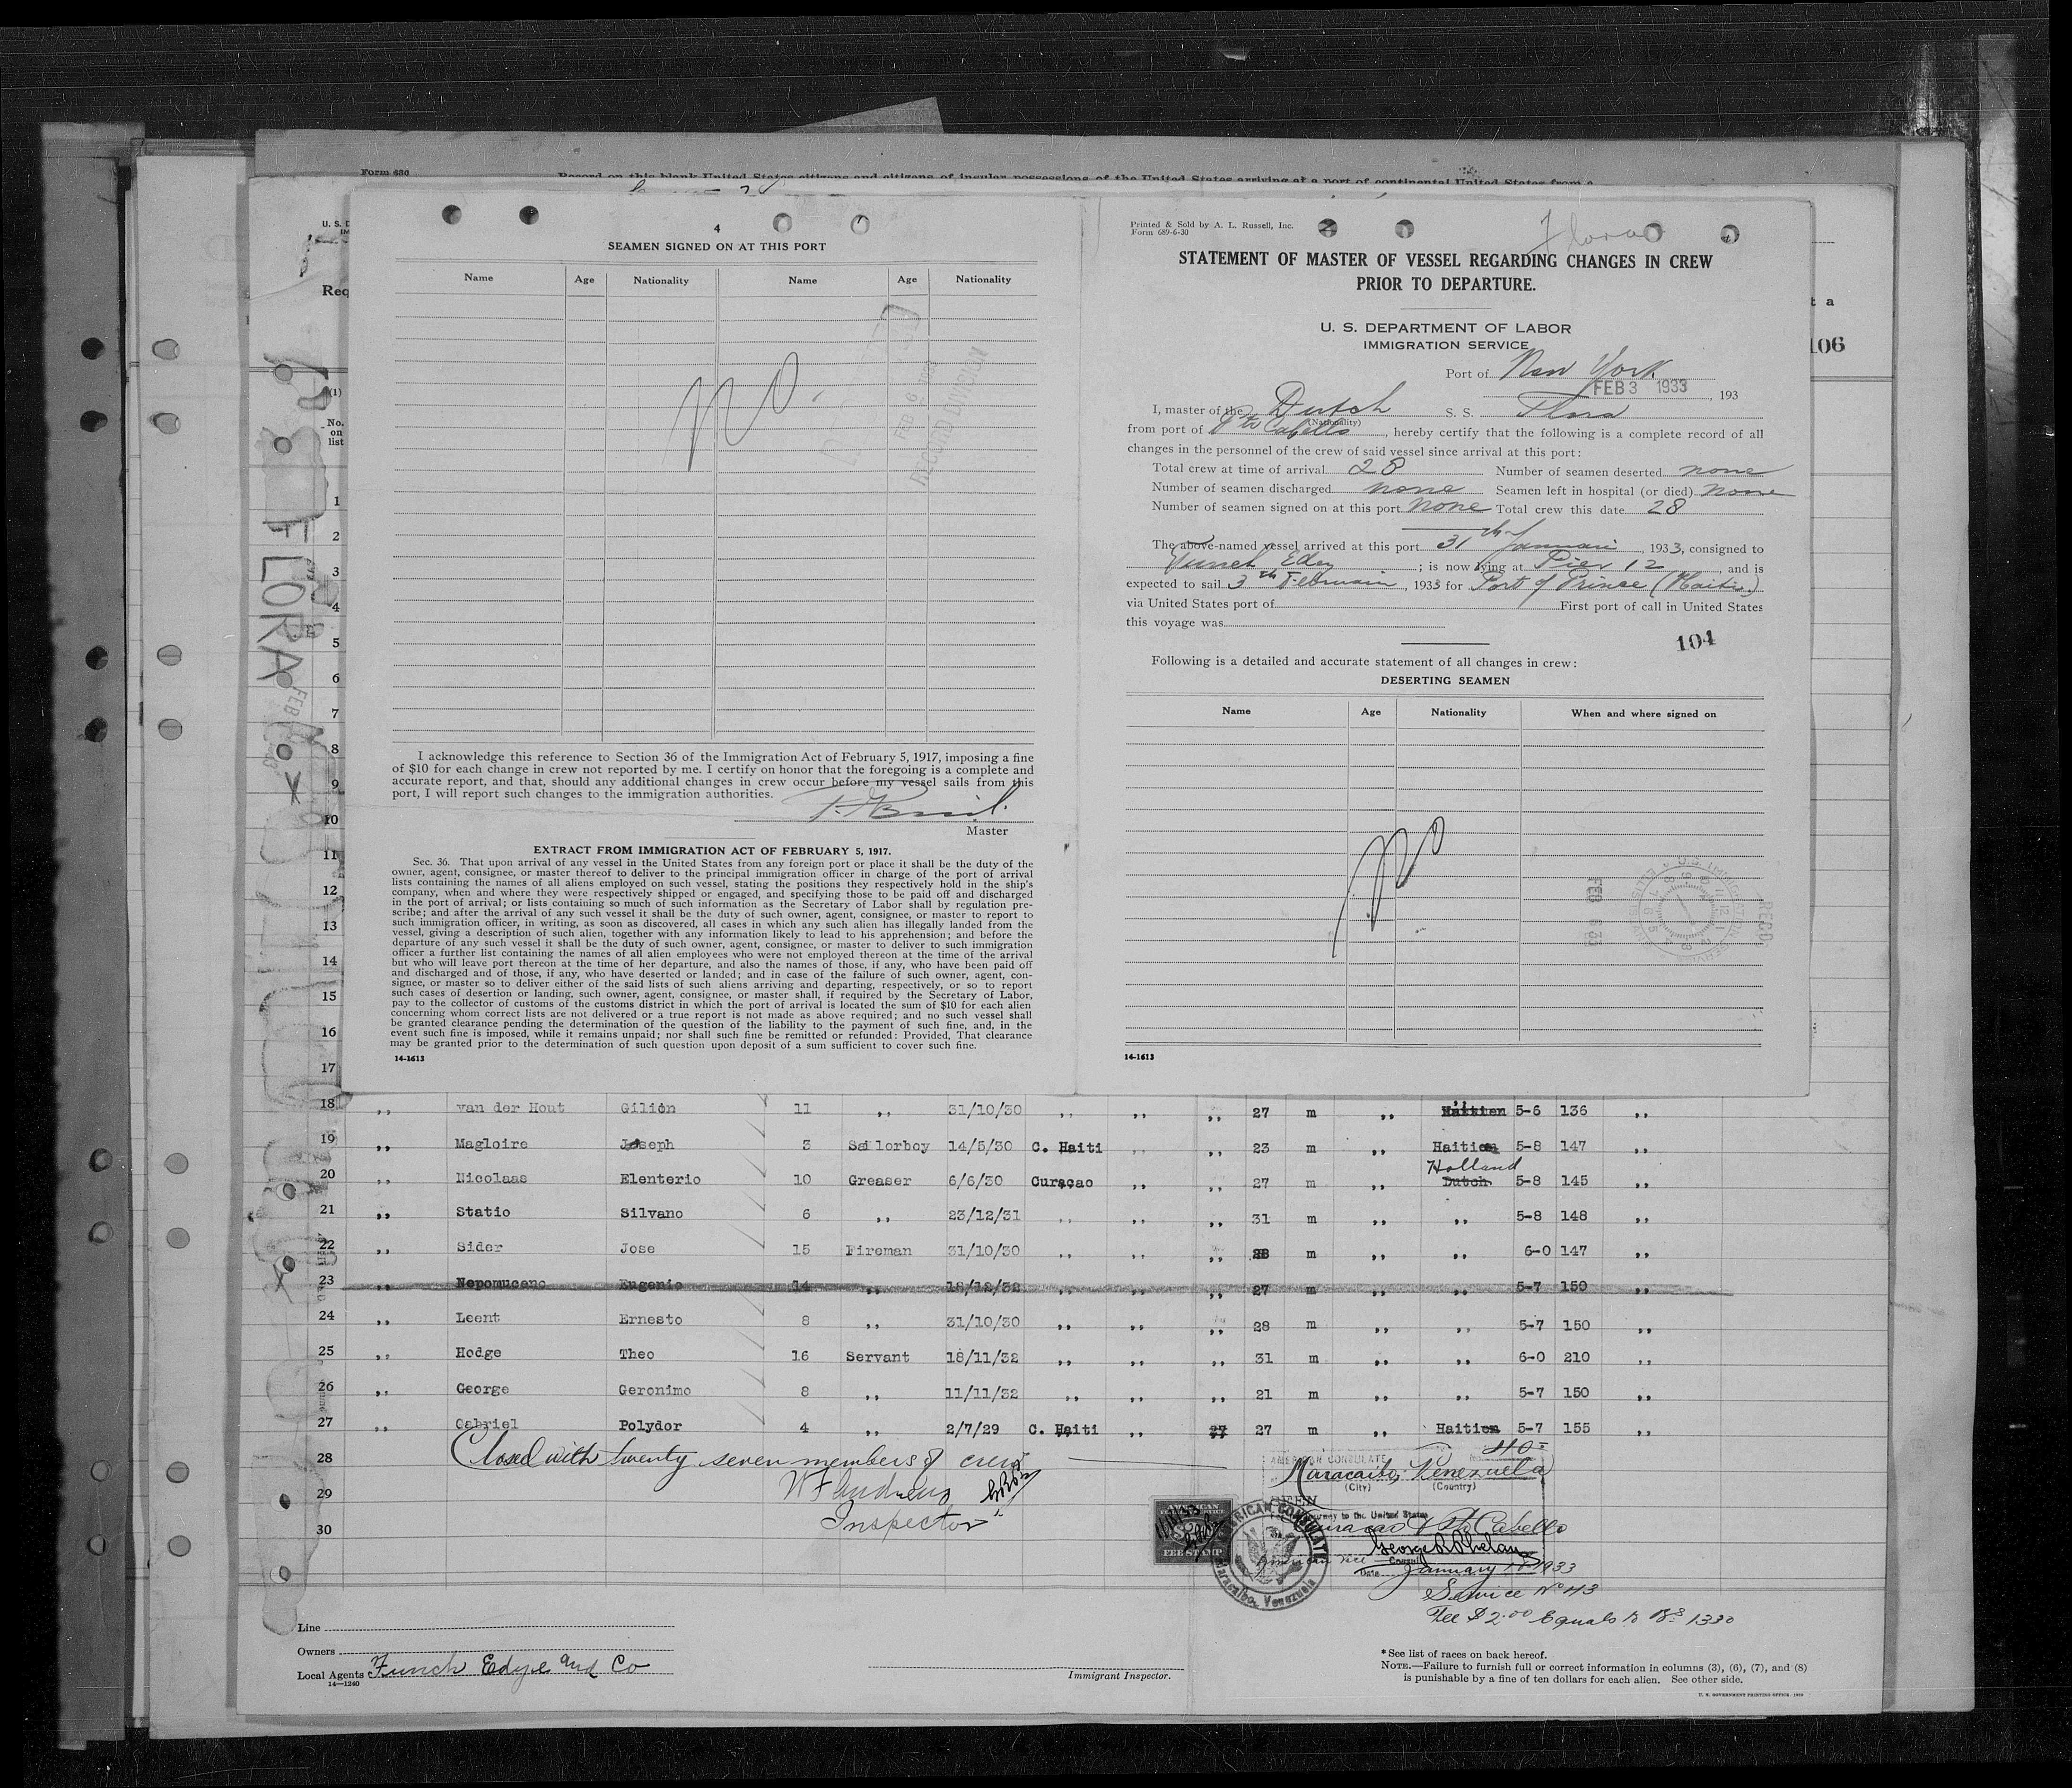 Form 686
Record on this blank United States citizens and citizens of insular possessions of the United States arriving at a port of continental United States from a
4
SEAMEN SIGNED ON AT THIS PORT
Name Age Nationality Name Age Nationality
no.
FEB 6 1933
RECORD DIVISION
I acknowledge this reference to Section 36 of the Immigration Act of February 5, 1917, imposing a fine
of $10 for each change in crew not reported by me. I certify on honor that the foregoing is a complete and
accurate report, and that, should any additional changes in crew occur before my vessel sails from this
port, I will report such changes to the immigration authorities.
Master
EXTRACT FROM IMMIGRATION ACT OF FEBRUARY 5, 1917.
Sec. 36. That upon arrival of any vessel in the United States from any foreign port or place it shall be the duty of the
owner, agent, consignee, or master thereof to deliver to the principal immigration officer in charge of the port of arrival
lists containing the names of all aliens employed on such vessel, stating the positions they respectively hold in the ship's
company, when and where they were respectively shipped or engaged, and specifying those to be paid off and discharged
in the port of arrival; or lists containing so much of such information as the Secretary of Labor shall by regulation pre-
scribe; and after the arrival of any such vessel it shall be the duty of such owner, agent, consignee, or master to report to
such immigration officer, in writing, as soon as discovered, all cases in which any such alien has illegally landed from the
vessel, giving a description of such alien, together with any information likely to lead to his apprehension; and before the
departure of any such vessel it shall be the duty of such owner, agent, consignee, or master to deliver to such immigration
officer a further list containing the names of all alien employees who were not employed thereon at the time of the arrival
but who will leave port thereon at the time of her departure, and also the names of those, if any, who have been paid off
and discharged and of those, if any, who have deserted or landed; and in case of the failure of such owner, agent, con-
signee, or master so to deliver either of the said lists of such aliens arriving and departing, respectively, or so to report
such cases of desertion or landing, such owner, agent, consignee, or master shall, if required by the Secretary of Labor,
pay to the collector of customs of the customs district in which the port of arrival is located the sum of $10 for each alien
concerning whom correct lists are not delivered or a true report is not made as above required; and no such vessel shall
be granted clearance pending the determination of the question of the liability to the payment of such fine, and, in the
event such fine is imposed, while it remains unpaid; nor shall such fine be remitted or refunded: Provided, That clearance
may be granted prior to the determination of such question upon deposit of a sum sufficient to cover such fine.
14-1613
Printed & Sold by A. L. Russell, Inc.
Form 689-6-30
Flora
STATEMENT OF MASTER OF VESSEL REGARDING CHANGES IN CREW
PRIOR TO DEPARTURE.
U. S. DEPARTMENT OF LABOR
IMMIGRATION SERVICE
Port of New York
FEB 3 1933, 193
I, master of the Dutch S. S. Flora
(Nationality)
from port of Pto Cabello, hereby certify that the following is a complete record of all
changes in the personnel of the crew of said vessel since arrival at this port:
Total crew at time of arrival 28 Number of seamen deserted none
Number of seamen discharged none Seamen left in hospital (or died) none
Number of seamen signed on at this port none Total crew this date 28
The above-named vessel arrived at this port 31th Januari, 1933, consigned to
Funch Edey; is now lying at Pier 12, and is
expected to sail 3th Februari, 1933 for Port of Prince (Haiti)
via United States port of First port of call in United States
this voyage was
104
Following is a detailed and accurate statement of all changes in crew:
DESERTING SEAMEN
Name Age Nationality When and where signed on
no
FEB 6 33
RECD
14-1613
t a
106
U. S. D
Req
(1)
No. on list
FLORA
FEB
1
2
3
4
5
6
7
8
9
10
11
12
13
14
15
16
17
18 ,, van der Hout Gilion 11 ,, 31/10/30 ,, ,, ,, 27 m ,, Haitien ,, 5-6 136 ,,
19 ,, Magloire Joseph 3 Sailorboy 14/5/30 C. Haiti ,, ,, 23 m ,, Haitien 5-8 147 ,,
Holland
20 ,, Nicolaas Elenterio 10 Greaser 6/6/30 Curaçao ,, ,, 27 m ,, Dutch 5-8 145 ,,
21 ,, Statio Silvano 6 ,, 23/12/31 ,, ,, ,, 31 m ,, ,, 5-8 148 ,,
22 ,, Sider Jose 15 Fireman 31/10/30 ,, ,, ,, 28 m ,, ,, 6-0 147 ,,
23 ,, Nepomuceno Eugenio 14 ,, 18/12/32 ,, ,, ,, 27 m ,, ,, 5-7 150 ,,
24 ,, Leent Ernesto 8 ,, 31/10/30 ,, ,, ,, 28 m ,, ,, 5-7 150 ,,
25 ,, Hodge Theo 16 Servant 18/11/32 ,, ,, ,, 31 m ,, ,, 6-0 210 ,,
26 ,, George Geronimo 8 ,, 11/11/32 ,, ,, ,, 21 m ,, ,, 5-7 150 ,,
27 ,, Gabriel Polydor 4 ,, 2/7/29 C. Haiti ,, 27 27 m ,, Haitien 5-7 155 ,,
28 Closed with twenty seven members of crew
29 W F Andrews
30 Inspector
AMERICAN CONSULATE
Maracaibo, Venezuela
(City) (Country)
journey to the United States
Curacao & Pto Cabello
George R Phelan
American Vice Consul
Date January 11 1933
Service No 413
Fee $2.00 Equals to Bs 13.30
FEE STAMP
AMERICAN CONSULATE
Maracaibo, Venezuela
Line
Owners
Local Agents Funch Edye and Co
14-1240
Immigrant Inspector.
* See list of races on back hereof.
NOTE.—Failure to furnish full or correct information in columns (3), (6), (7), and (8)
is punishable by a fine of ten dollars for each alien. See other side.
U. S. GOVERNMENT PRINTING OFFICE. 1929